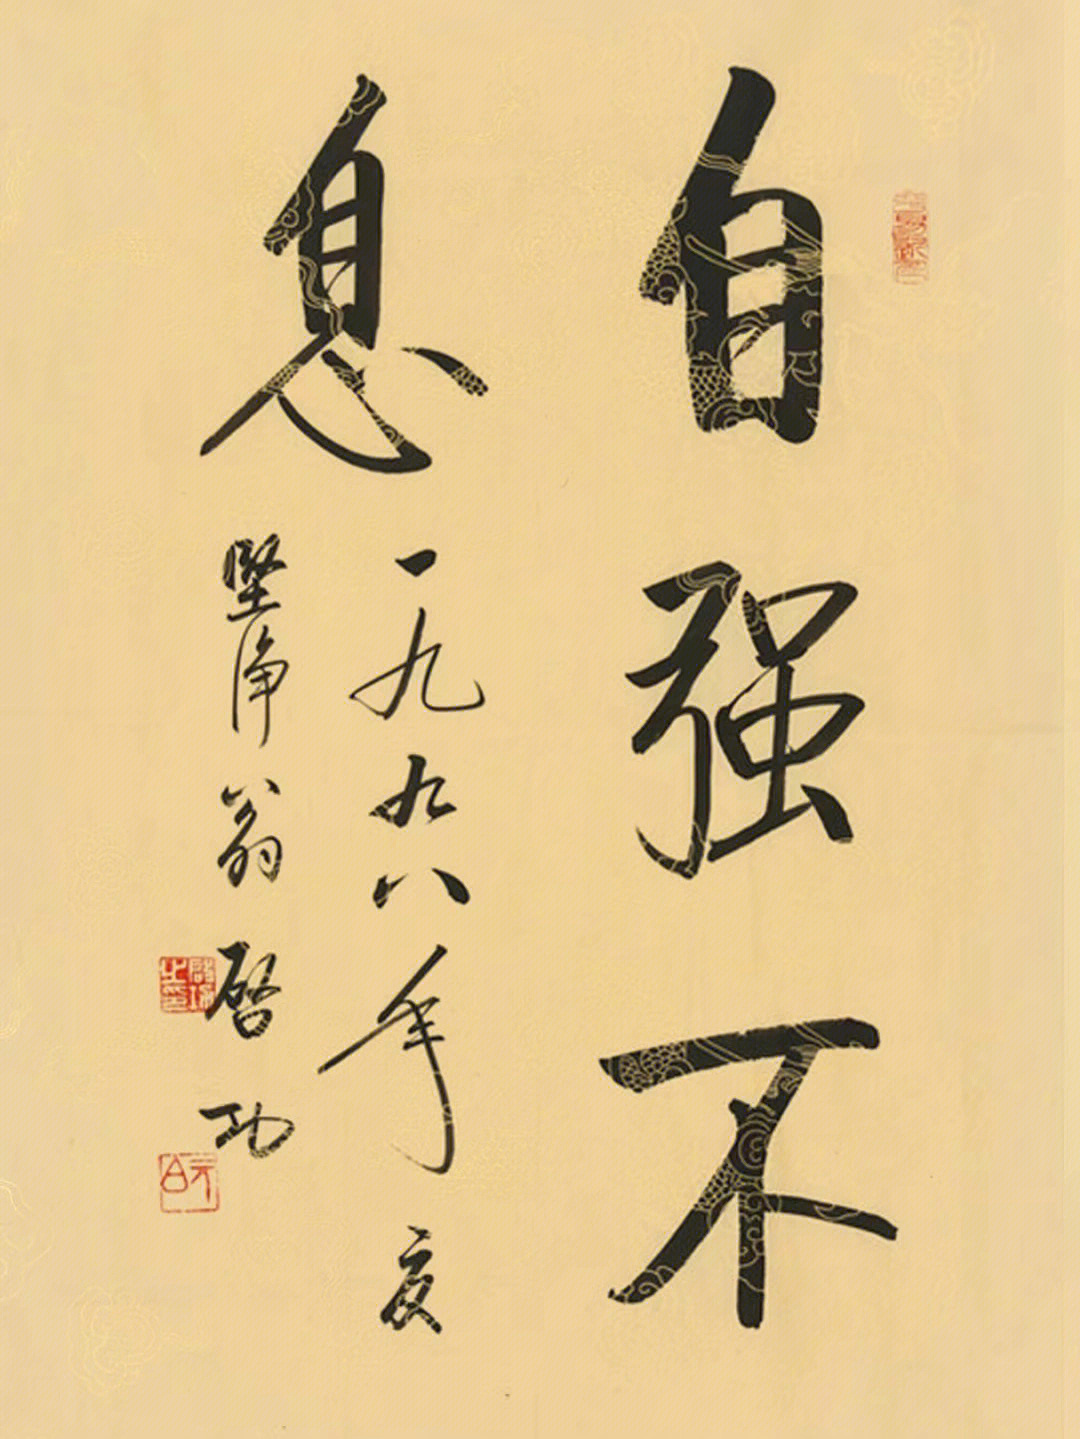 自强不
息
一九九八年夏
堅净翁启功
元白